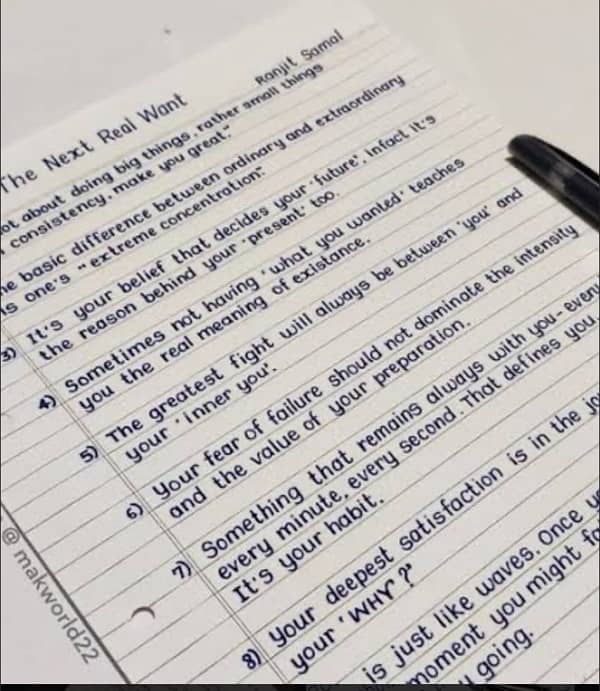 The Next Real Want
Ranjit Samal
about doing big things, rather small things
consistency, make you great"
basic difference between ordinary and extraordinary
is one's "extreme concentration".
3) It's your belief that decides your 'future', infact it's
the reason behind your 'present' too.
4) Sometimes not having 'what you wanted' teaches
you the real meaning of existance.
5) The greatest fight will always be between 'you' and
your 'inner you'.
6) Your fear of failure should not dominate the intensity
and the value of your preparation.
7) Something that remains always with you- every
every minute, every second. That defines you.
It's your habit.
8) Your deepest satisfaction is in the
your 'WHY?'
is just like waves. Once
moment you might
going.
@makworld22